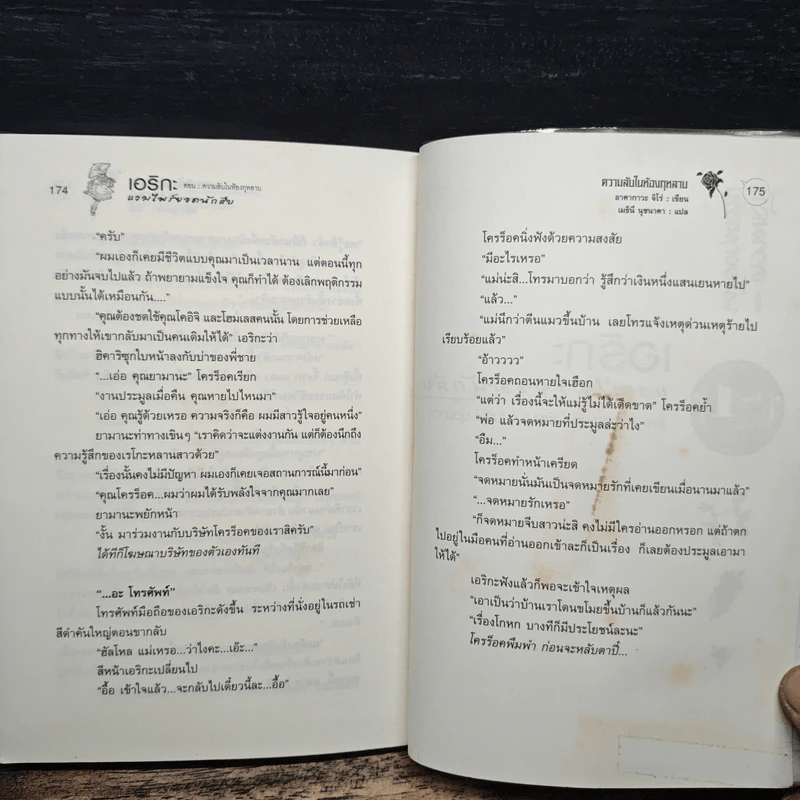 174
เอริกะ ตอน : ความลับในห้องกุหลาบ
แวมไพร์ยอดนักสืบ
"ครับ"
"ผมเองก็เคยมีชีวิตแบบคุณมาเป็นเวลานาน แต่ตอนนี้ทุก
อย่างมันจบไปแล้ว ถ้าพยายามแข็งใจ คุณก็ทำได้ ต้องเลิกพฤติกรรม
แบบนั้นได้เหมือนกัน...."
"คุณต้องชดใช้คุณโคอิจิ และโฮมเลสคนนั้น โดยการช่วยเหลือ
ทุกทางให้เขากลับมาเป็นคนเดิมให้ได้" เอริกะว่า
ฮิคาริซุกใบหน้าลงกับบ่าของพี่ชาย
"...เอ่อ คุณยามานะ" โครร็อคเรียก
"งานประมูลเมื่อคืน คุณหายไปไหนมา"
"เอ่อ คุณรู้ด้วยเหรอ ความจริงก็คือ ผมมีสาวรู้ใจอยู่คนหนึ่ง"
ยามานะทำท่าทางเขินๆ "เราคิดว่าจะแต่งงานกัน แต่ก็ต้องนึกถึง
ความรู้สึกของเรโกะหลานสาวด้วย"
"เรื่องนั้นคงไม่มีปัญหา ผมเองก็เคยเจอสถานการณ์นี้มาก่อน"
"คุณโครร็อค...ผมว่าผมได้รับพลังใจจากคุณมากเลย"
ยามานะพยักหน้า
"งั้น มาร่วมงานกับบริษัทโครร็อคของเราสิครับ"
ได้ทีก็โฆษณาบริษัทของตัวเองทันที
"...อะ โทรศัพท์"
โทรศัพท์มือถือของเอริกะดังขึ้น ระหว่างที่นั่งอยู่ในรถเช่า
สีดำคันใหญ่ตอนขากลับ
"ฮัลโหล แม่เหรอ...ว่าไงคะ...เอ๊ะ..."
สีหน้าเอริกะเปลี่ยนไป
"อื้อ เข้าใจแล้ว...จะกลับไปเดี๋ยวนี้ละ...อื้อ"
ความลับในห้องกุหลาบ
อาคากาวะ จิโร่ : เขียน
เมธินี นุชนาคา : แปล
175
โครร็อคนิ่งฟังด้วยความสงสัย
"มีอะไรเหรอ"
"แม่น่ะสิ...โทรมาบอกว่า รู้สึกว่าเงินหนึ่งแสนเยนหายไป"
"แล้ว..."
"แม่นึกว่าตีนแมวขึ้นบ้าน เลยโทรแจ้งเหตุด่วนเหตุร้ายไป
เรียบร้อยแล้ว"
"อ้าวววว"
โครร็อคถอนหายใจเฮือก
"แต่ว่า เรื่องนี้จะให้แม่รู้ไม่ได้เด็ดขาด" โครร็อคย้ำ
"พ่อ แล้วจดหมายที่ประมูลล่ะว่าไง"
"อืม..."
โครร็อคทำหน้าเครียด
"จดหมายนั่นมันเป็นจดหมายรักที่เคยเขียนเมื่อนานมาแล้ว"
"...จดหมายรักเหรอ"
"ก็จดหมายจีบสาวน่ะสิ คงไม่มีใครอ่านออกหรอก แต่ถ้าตก
ไปอยู่ในมือคนที่อ่านออกเข้าละก็เป็นเรื่อง ก็เลยต้องประมูลเอามา
ให้ได้"
เอริกะฟังแล้วก็พอจะเข้าใจเหตุผล
"เอาเป็นว่าบ้านเราโดนขโมยขึ้นบ้านก็แล้วกันนะ"
"เรื่องโกหก บางทีก็มีประโยชน์ละนะ"
โครร็อคพึมพำ ก่อนจะหลับตาปี๋...